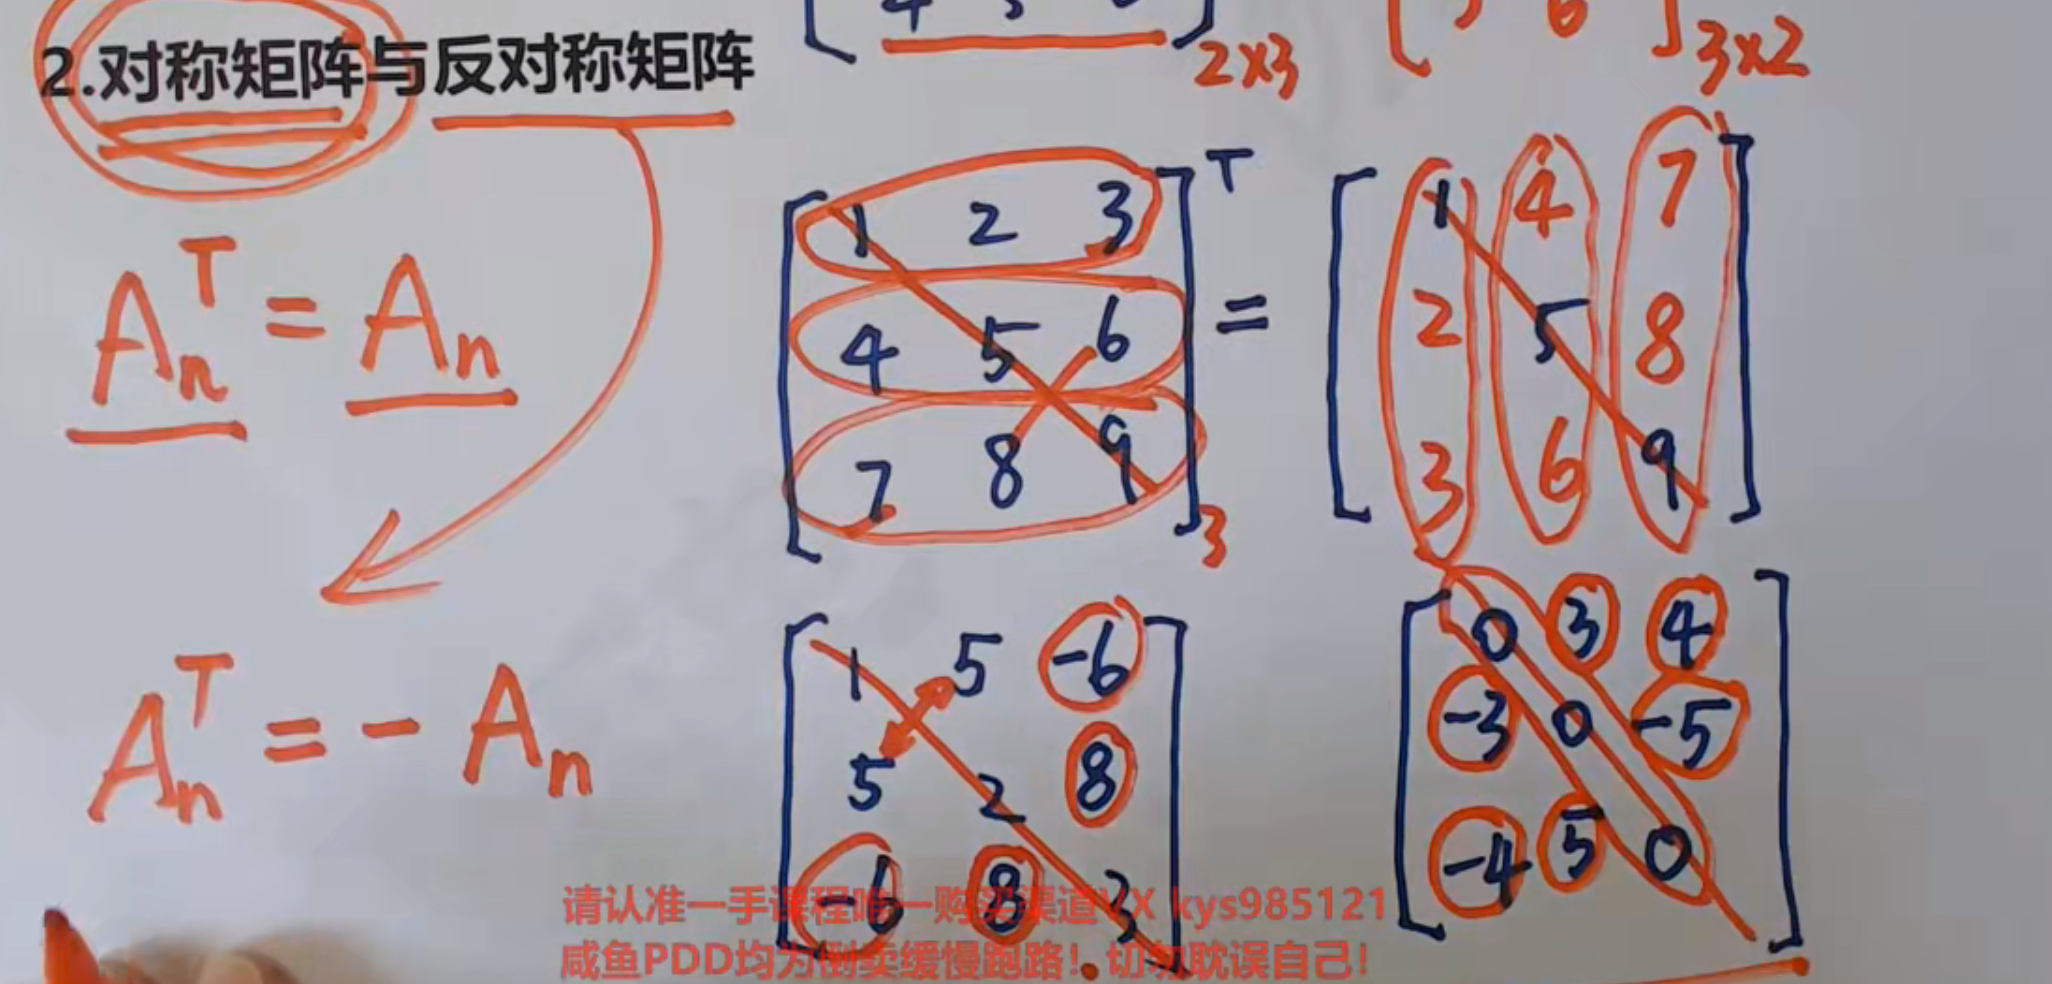 2×3
3×2
2.对称矩阵与反对称矩阵
1 2 3
4 5 6
7 8 9
T
3
=
1 4 7
2 5 8
3 6 9
Aₙᵀ = Aₙ
Aₙᵀ = - Aₙ
1 5 -6
5 2 8
-6 8 3
0 3 4
-3 0 -5
-4 5 0
请认准一手课程唯一购买渠道VX kys985121
咸鱼PDD均为倒卖缓慢跑路！切勿耽误自己！